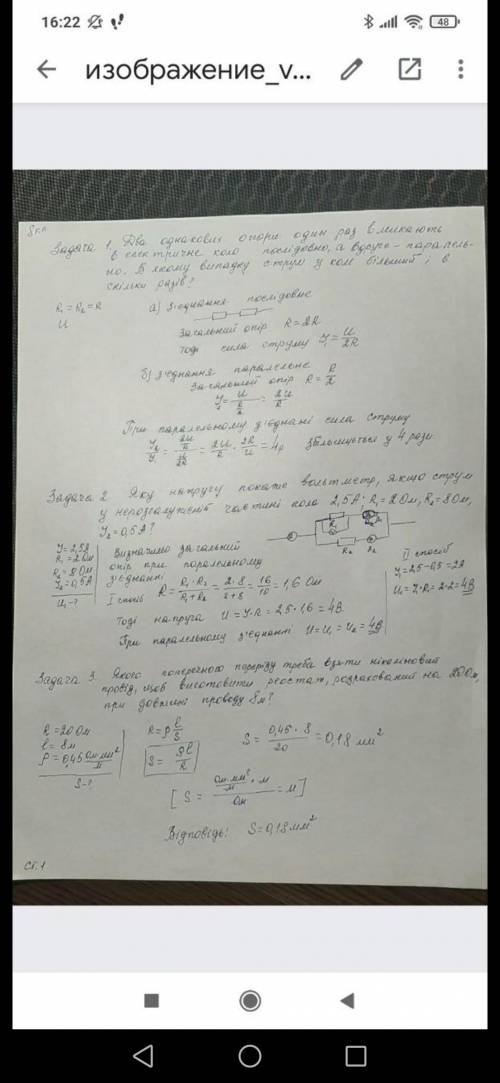 16:22
48
изображение_v...
8 кл
Задача 1. Два однакових опори один раз вмикають
в електричне коло послідовно, а вдруге - паралель-
но. В якому випадку струм у колі більший і в
скільки разів?
R₁ = R₂ = R
U
а) З'єднання послідовне
Загальний опір R = 2R
Тоді сила струму I₁ = U/2R
б) з'єднання паралельне
Загальний опір R = R/2
I₂ = U/(R/2) = 2U/R
При паралельному з'єднані сила струму
I₂/I₁ = (2U/R)/(U/2R) = 2U/R · 2R/U = 4, збільшується у 4 рази
Задача 2 Яку напругу покаже вольтметр, якщо струм
у нерозгалуженій частині кола 2,5А; R₁ = 2 Ом, R₂ = 8 Ом,
I₂ = 0,5А?
I = 2,5А
R₁ = 2 Ом
R₂ = 8 Ом
I₂ = 0,5А
U₁ - ?
Визначимо загальний
опір при паралельному
з'єднанні
I спосіб R = R₁ · R₂/(R₁ + R₂) = 2·8/(2+8) = 16/10 = 1,6 Ом
Тоді напруга U = I·R = 2,5 · 1,6 = 4В
При паралельному з'єднанні U = U₁ = U₂ = 4В
R₁
R₂
II спосіб
I₁ = 2,5 - 0,5 = 2А
U₁ = I₁·R₁ = 2·2 = 4В
Задача 3. Якого поперечного перерізу треба взяти ніколіновий
провід, щоб виготовити реостат, розрахований на 20 Ом,
при довжині проводу 8м?
R = 20 Ом
l = 8м
ρ = 0,45 Ом·мм²/м
S - ?
R = ρ l/S
S = ρl/R
S = 0,45 · 8/20 = 0,18 мм²
[S = (Ом·мм²/м · м)/Ом = м]
Відповідь: S = 0,18 мм²
Ст.1